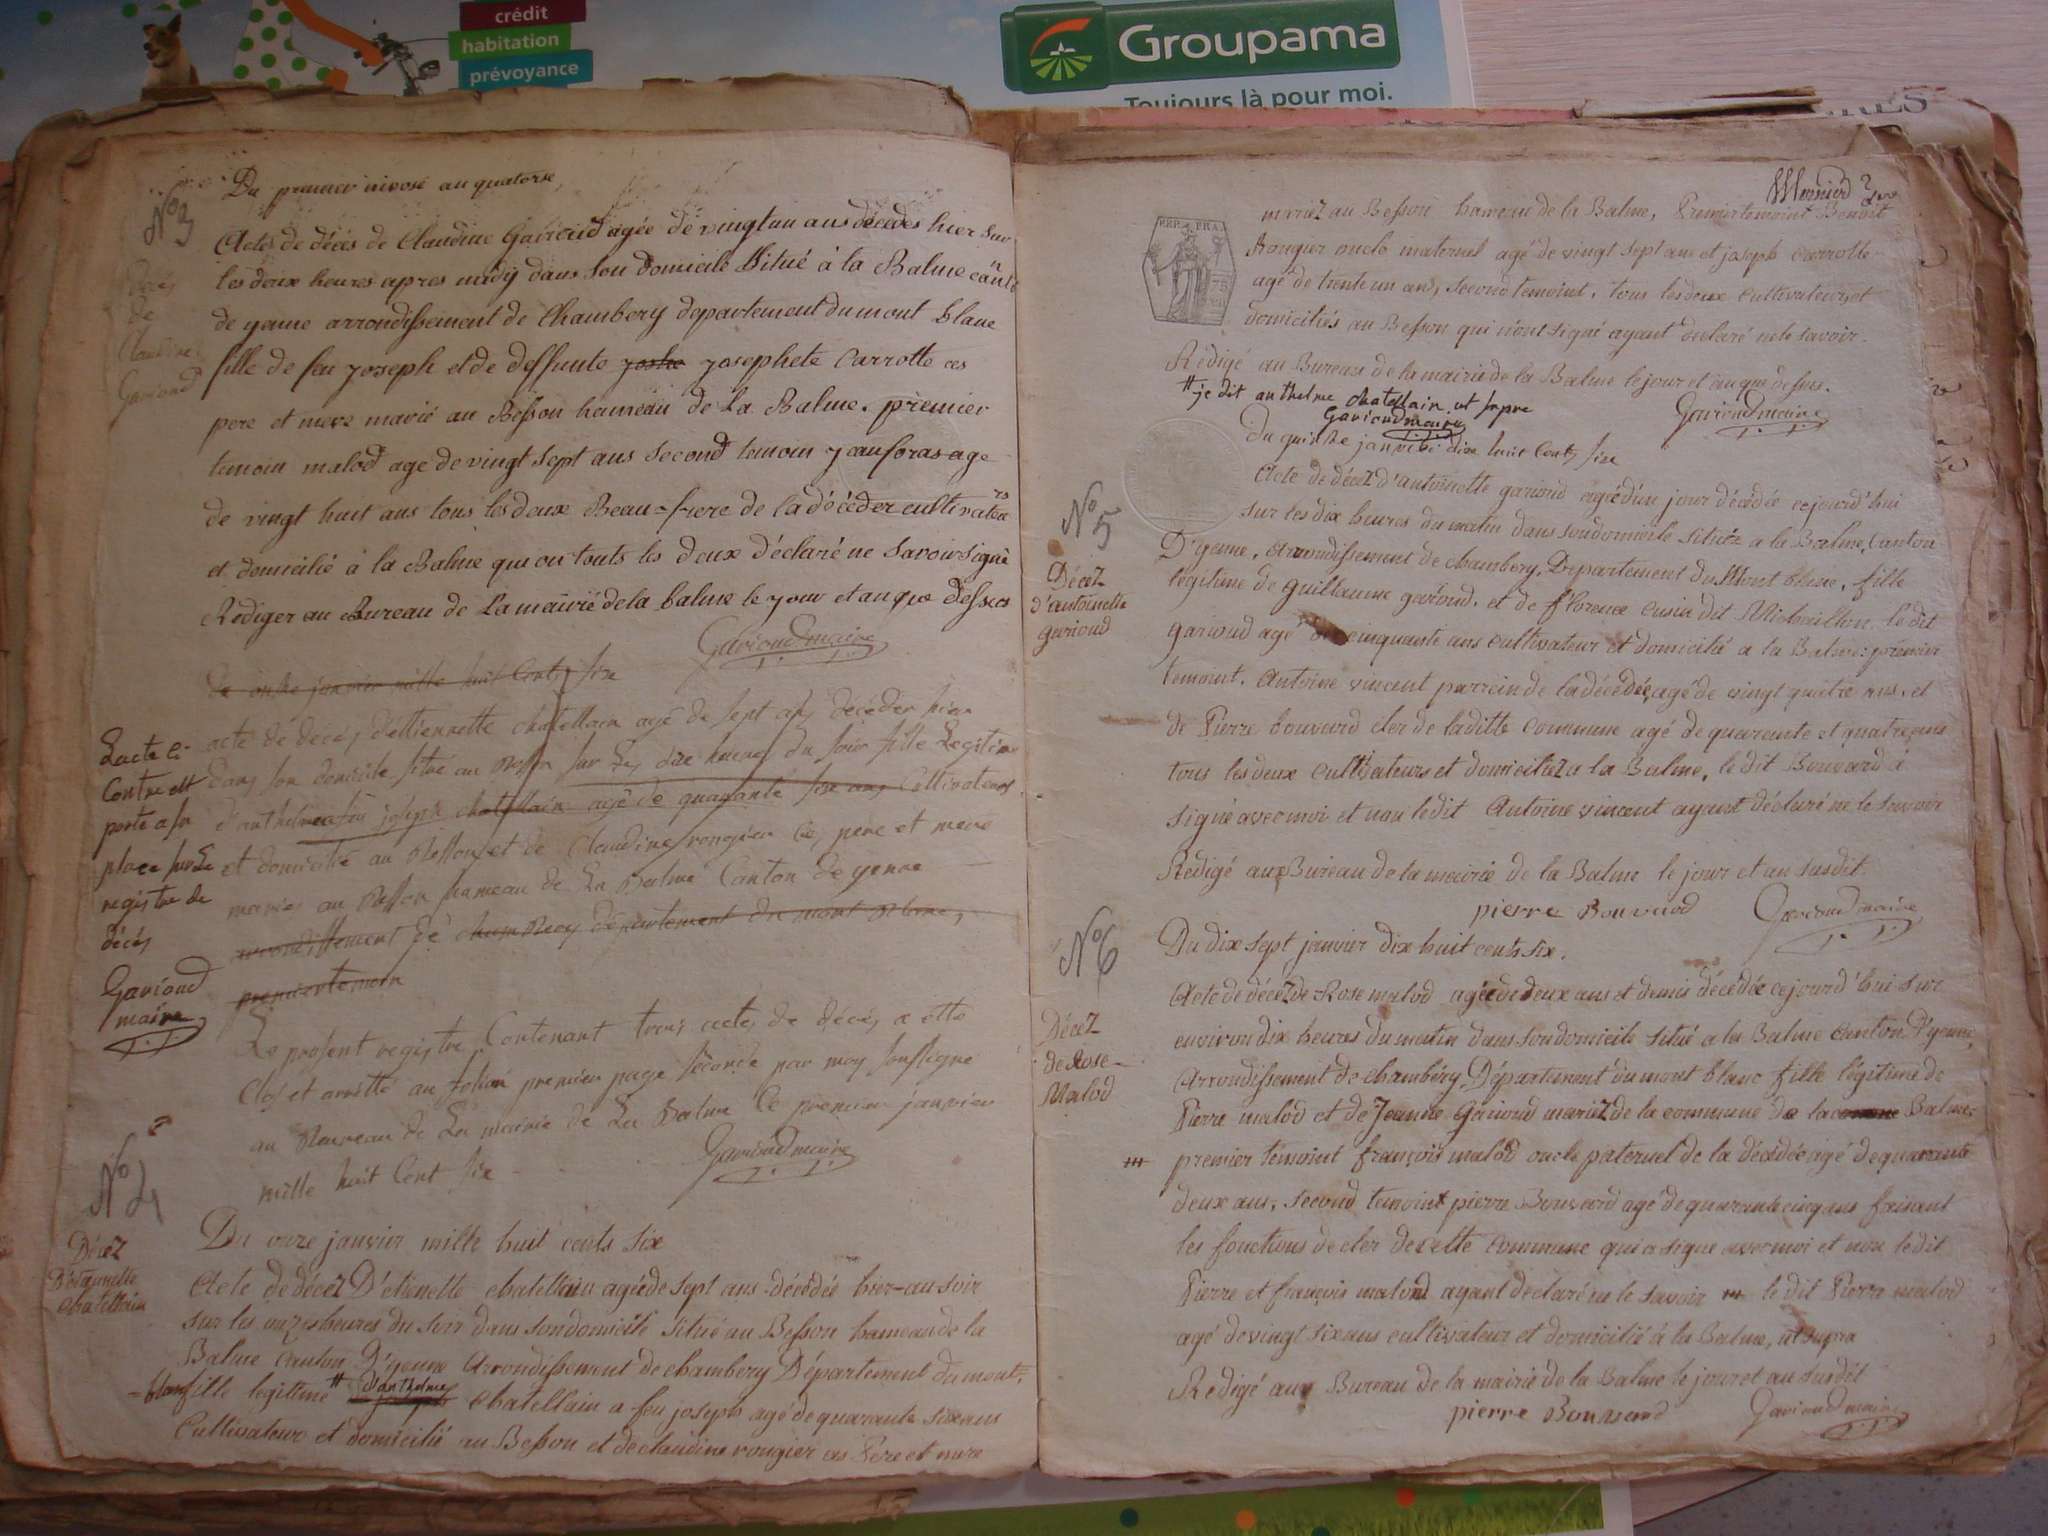 crédit
habitation
prévoyance
Groupama
Toujours là pour moi.
Du premier nivose an quatorse
No 3
Décés
de
Claudine
Gavioud
Actes de décés de Claudine Gavioud agée de vingtun ans décédés hier sur
les deux heures apres midy dans son domicile Situé à la Balme canton
de yenne arrondissement de Chambery departement du mont blanc
fille de feu joseph et de deffunte josephete Carrotte ces
pere et mere marié au Besson hameau de La Balme. premier
temoin malod agé de vingt sept ans second temoin jean foras age
de vingt huit ans tous les deux Beau=frere de la décéder cultivateurs
et domicilié à la Balme qui on touts les deux déclaré ne savoir signé
Rediger au Bureau de La mairie de la balme le jour et an que dessus
Gavioud maire
Du onze janvier mille huit Cents six
acte de décés d'éttiennette chatellain agé de sept ans décéder hier
dans son domicile situé au Besson sur les dix heures du soir fille Legitime
d'anthelme a feu joseph chatellain agé de quarante six ans Cultivateur
et domicilié au Besson et de Claudine rongier Ces pere et mere
mariés au Besson hameau de La Balme Canton de yenne
arrondissement de chambery département du mont Blanc,
premier temoin
L'acte Ci-
Contre est
porté a sa
place sur Le
registre de
décés
Gavioud
maire
Le present registre Contenant trois actes de décés a etté
Clos et arretté au folio premier page seconde par moy soussigné
au Bureau de La mairie de La Balme Ce premier janvier
mille huit Cent six
Gavioud maire
No 4
Décéz
D'étiennette
chatellain
Du onze janvier mille huit cents six
Acte de décéz D'etienette chatellain agée de sept ans décédée hier-au soir
sur les onzes heures du soir dans son domicile situé au Besson hameau de la
Balme canton D'yenne Arrondissement de chambery Département du mont-
=blanc fille legitime # d'anthelme chatellain a feu joseph agé de quarante six ans
Cultivateur et domicilié au Besson et de claudine rougier ces Pere et mere
REP. FRA.
mariez au Besson hameau de la Balme, Premier temoint Benoit
Rougier oncle maternel agé de vingt sept ans et joseph carrotte
agé de trente un ans, second temoint, tous les deux cultivateurs et
domiciliés au Besson qui n'ont signé ayant declaré ne le savoir.
Rédigé au Bureau de la mairie de la Balme le jour et an que dessus.
# je dit anthelme chatellain ut supra
Gavioud maire
Gavioud maire
Du quinze janvier dix huit Cents six
No 5
Décéz
d'antoinette
gavioud
Acte de décéz d'antoinette gavioud agée d'un jour décédée cejourd'hui
sur les dix heures du matin dans son domicile situéz a la Balme, Canton
D'yenne, Arrondissement de chambery, Departement du Mont blanc, fille
légitime de guillaume gavioud, et de florence cusin dit Michaillon, le dit
gavioud agé de cinquante ans cultivateur et domicilié a la Balme: premier
temoint, Antoine vincent parrein de la décédée, agé de vingt quatre ans, et
de Pierre bouvard cler de laditte commune agé de quarante et quatre ans
tous les deux cultivateurs et domiciliez a la Balme, le dit Bouvard à
signé avec moi et non le dit Antoine vincent ayant déclaré ne le savoir
Redigé aux Bureau de la mairie de la Balme le jour et an susdit.
pierre Bouvard
Gavioud maire
No 6
Décéz
de Rose
Malod
Du dix sept janvier dix huit cents six.
Acte de décéz de Rose malod agée de deux ans et demis décédée cejourd'hui sur
environ dix heures du matin dans son domicile situé a la Balme canton d'yenne,
Arrondissement de chambéry, Département du mont blanc fille légitime de
Pierre malod et de Jeanne Gavioud mariéz de la commune de la Balme
premier témoint françois malod oncle paternel de la décédée agé de quarante
deux ans, second temoint pierre Bouvard agé de quarante cinq ans faisant
les fonctions de cler de cette commune qui a signé avec moi et non le dit
Pierre et françois malod ayant declaré ne le savoir le dit Pierre malod
agé de vingt six ans cultivateur et domicilié à la Balme, ut supra
Redigé aux Bureau de la mairie de la Balme le jour et an susdit
pierre Bouvard
Gavioud maire